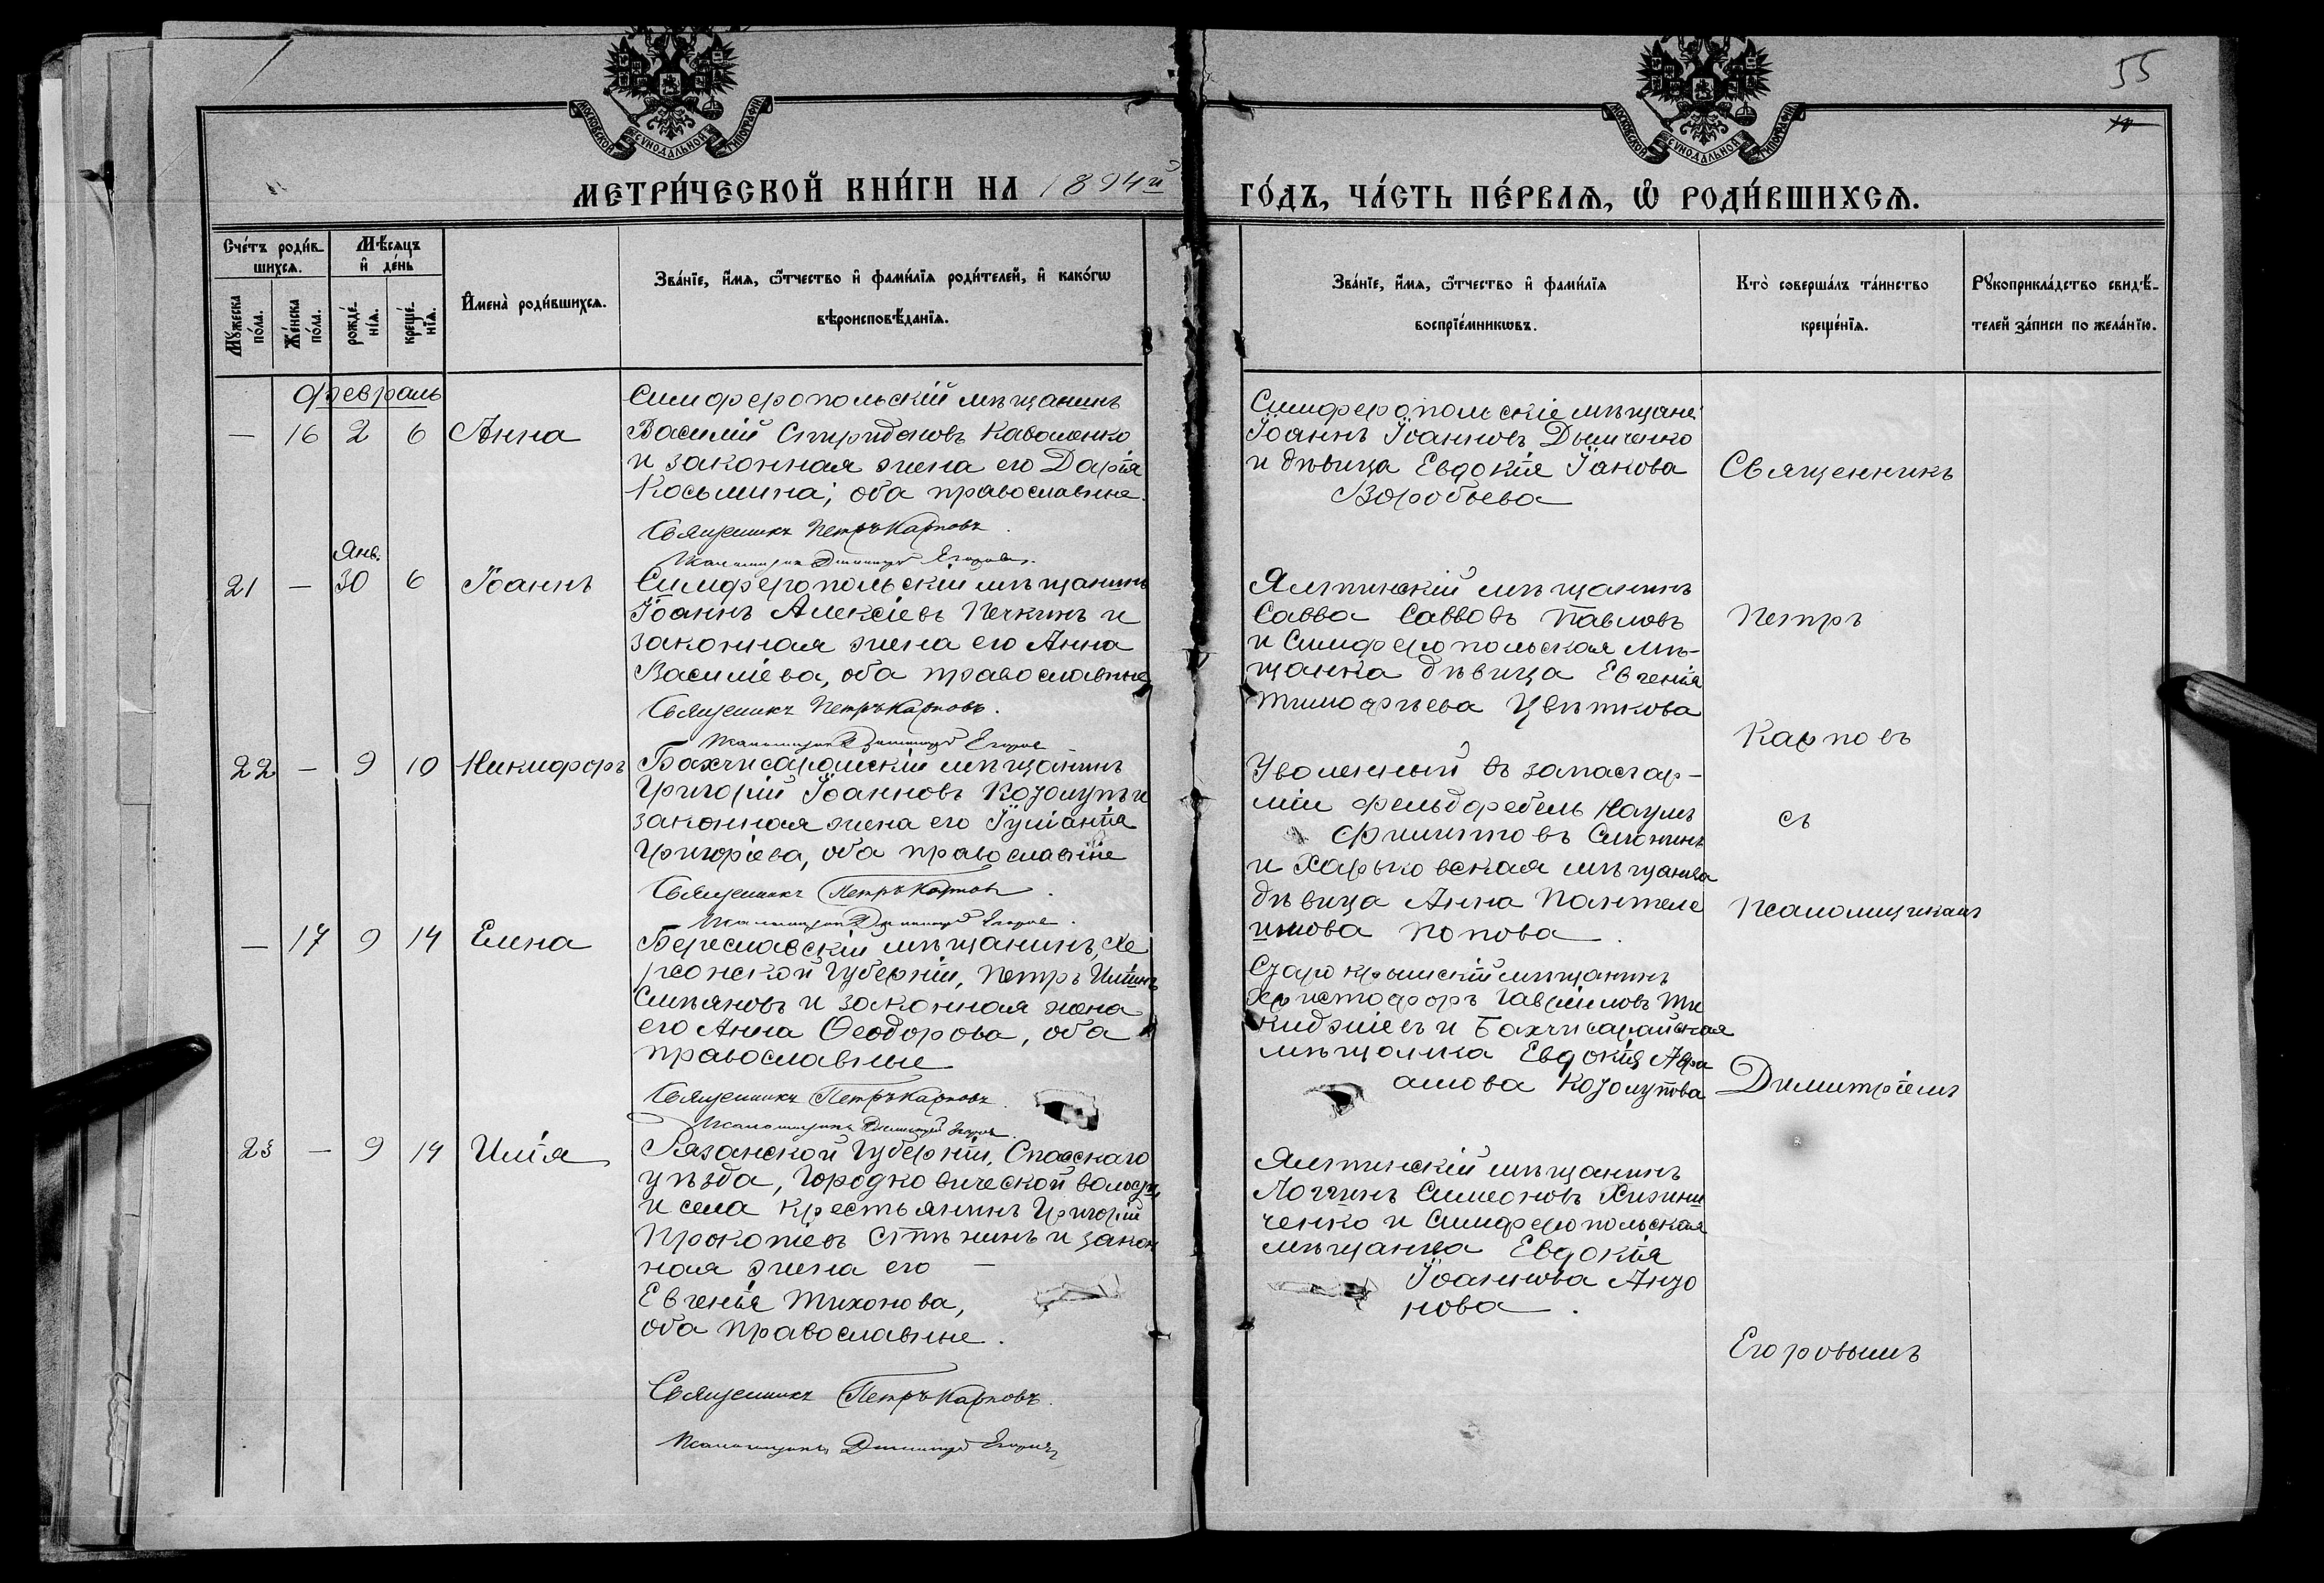 55
10
МОСКОВСКОЙ СѴНОДАЛЬНОЙ ТИПОГРАФІИ
МОСКОВСКОЙ СѴНОДАЛЬНОЙ ТИПОГРАФІИ
МЕТРИ́ЧЕСКОЙ КНИ́ГИ НА 1894й
ГО́ДЪ, ЧА́СТЬ ПЕ́РВАѦ, Ѡ҆ РОДИ́ВШИХСѦ.
Сче́тъ роди́в-
шихсѧ.
Мѣ́сѧцъ
и҆ де́нь
Мꙋ́жеска
по́ла.
Же́нска
по́ла.
рожде́-
нїѧ.
креще́-
нїѧ.
И҆мена̀ роди́вшихсѧ.
Зва́нїе, и҆́мѧ, ѻ҆́тчество и҆ фами́лїѧ роди́телей, и҆ како́гѡ
вѣроисповѣ́данїѧ.
Зва́нїе, и҆́мѧ, ѻ҆́тчество и҆ фами́лїѧ
воспрїе́мникѡвъ.
Кто̀ соверша́лъ та́инство
креще́нїѧ.
Рꙋкоприкла́дство свидѣ́-
телей за́писи по жела́нїю.
Февраль
— 16 2 6 Анна
Симферопольскій мѣщанинъ
Василій Спиридоновъ Коваленко
и законная жена его Дарія
Косьмина; оба православные.
Священникъ Петръ Карповъ.
Псаломщикъ Димитрій Егоровъ.
Симферопольскіе мѣщане
Іоаннъ Іоанновъ Дымченко
и дѣвица Евдокія Іакова
Воробьева
Священникъ
Янв.
21 — 30 6 Іоаннъ
Симферопольскій мѣщанинъ
Іоаннъ Алексіевъ Печкинъ и
законная жена его Анна
Василіева, оба православные
Священникъ Петръ Карповъ.
Псаломщикъ Димитрій Егоровъ
Ялтинскій мѣщанинъ
Савва Саввовъ Павловъ
и Симферопольская мѣ-
щанка дѣвица Евгенія
Тимофѣева Цвѣткова
Петръ
Карповъ
22 — 9 10 Никифоръ
Бахчисарайскій мѣщанинъ
Григорій Іоанновъ Козолупъ и
законная жена его Іуліанія
Григоріева, оба православные
Священникъ Петръ Карповъ.
Псаломщикъ Димитрій Егоровъ.
Уволенный въ запас ар-
міи фельдфебель Наумъ
Филиповъ
и Харьковская мѣщанка
дѣвица Анна Пантеле
имова Попова.
съ
Псаломщикомъ
— 17 9 14 Елена
Бериславскій мѣщанинъ, Хе
рсонской Губерніи, Петръ Иліинъ
Смѣяновъ и законная жена
его Анна Ѳеодорова, оба
православные
Священникъ Петръ Карповъ.
Псаломщикъ Димитрій Егоровъ.
Старокрымскій мѣщанинъ
Христофоръ Гавріиловъ Ти
киджіевъ и Бахчисарайская
мѣщанка Евдокія Авра
амова Козолупова
Димитріемъ
23 — 9 14 Илія
Рязанской Губерніи, Спасскаго
уѣзда, Городковической волости
и села крестьянинъ Григорій
Прокопіевъ Стѣнинъ и закон
ная жена его —
Евгенія Тихонова,
оба православные.
Священникъ Петръ Карповъ.
Псаломщикъ Димитрій Егоровъ
Ялтинскій мѣщанинъ
Логгинъ Симеоновъ
ченко и Симферопольская
мѣщанка Евдокія
Іоаннова
нова.
Егоровымъ